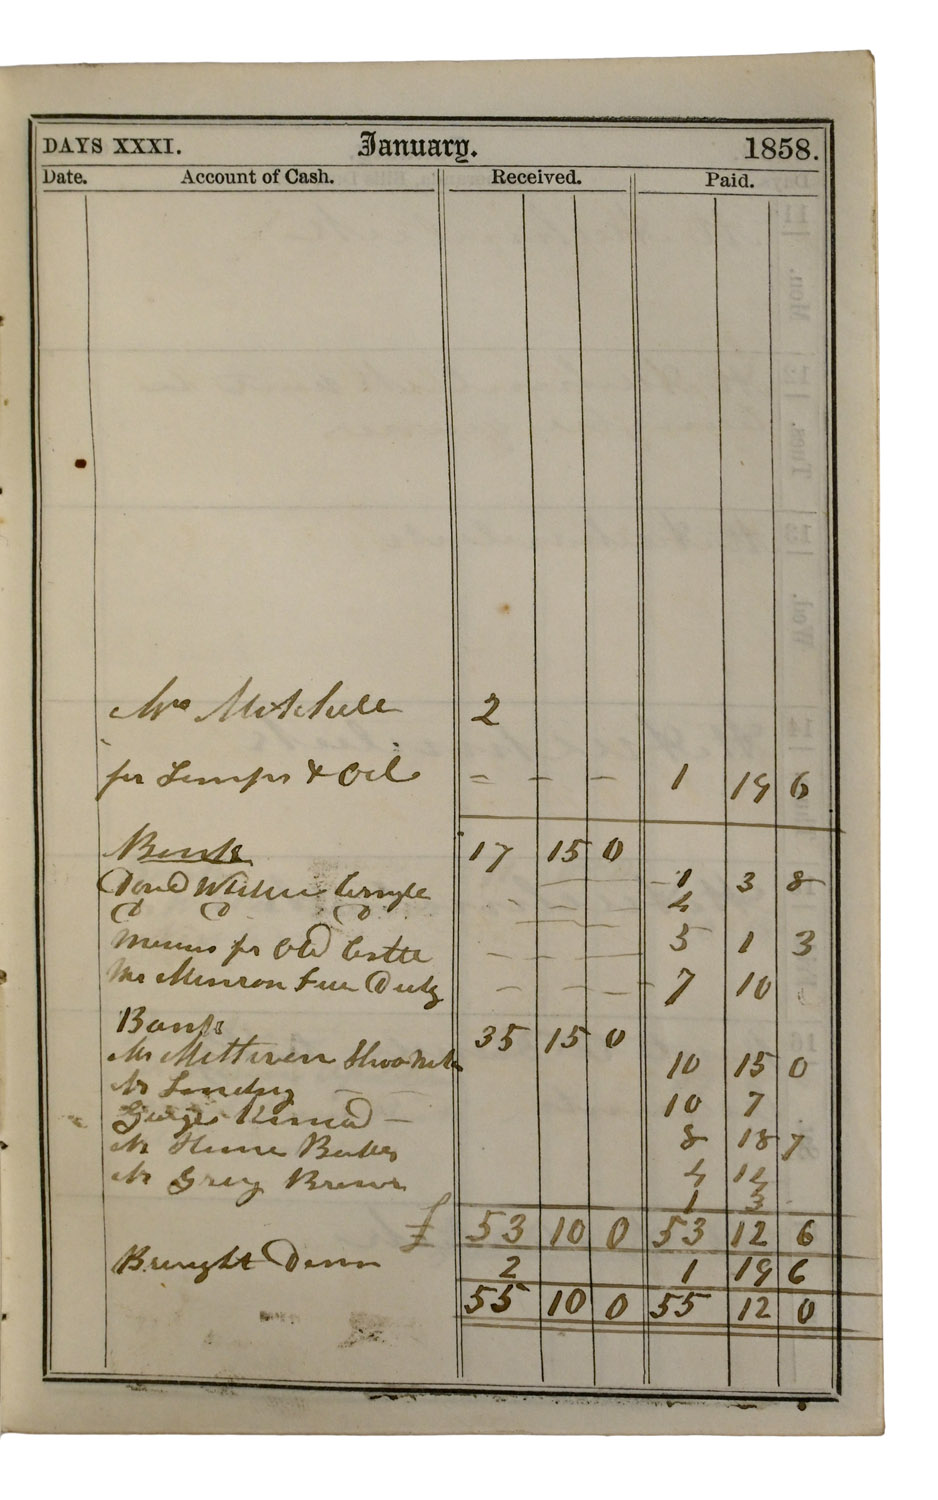 DAYS XXXI. January. 1858.
Date. Account of Cash. Received. Paid.
Mrs Mitchell 2
for Lamps & Oil = - - 1 19 6
Bank 17 15 0
1 3 8
4
for Old 5 1 3
Mr Munron Feu Duty - - - 7 10
Bank 35 15 0
Mr 10 15 0
Mr 10 7
George Kinnead - 8 18 7
Mr Hume Baker 4 14
Mr Greig Brewer 1 3
£ 53 10 0 53 12 6
Brought Down 2 1 19 6
55 10 0 55 12 0